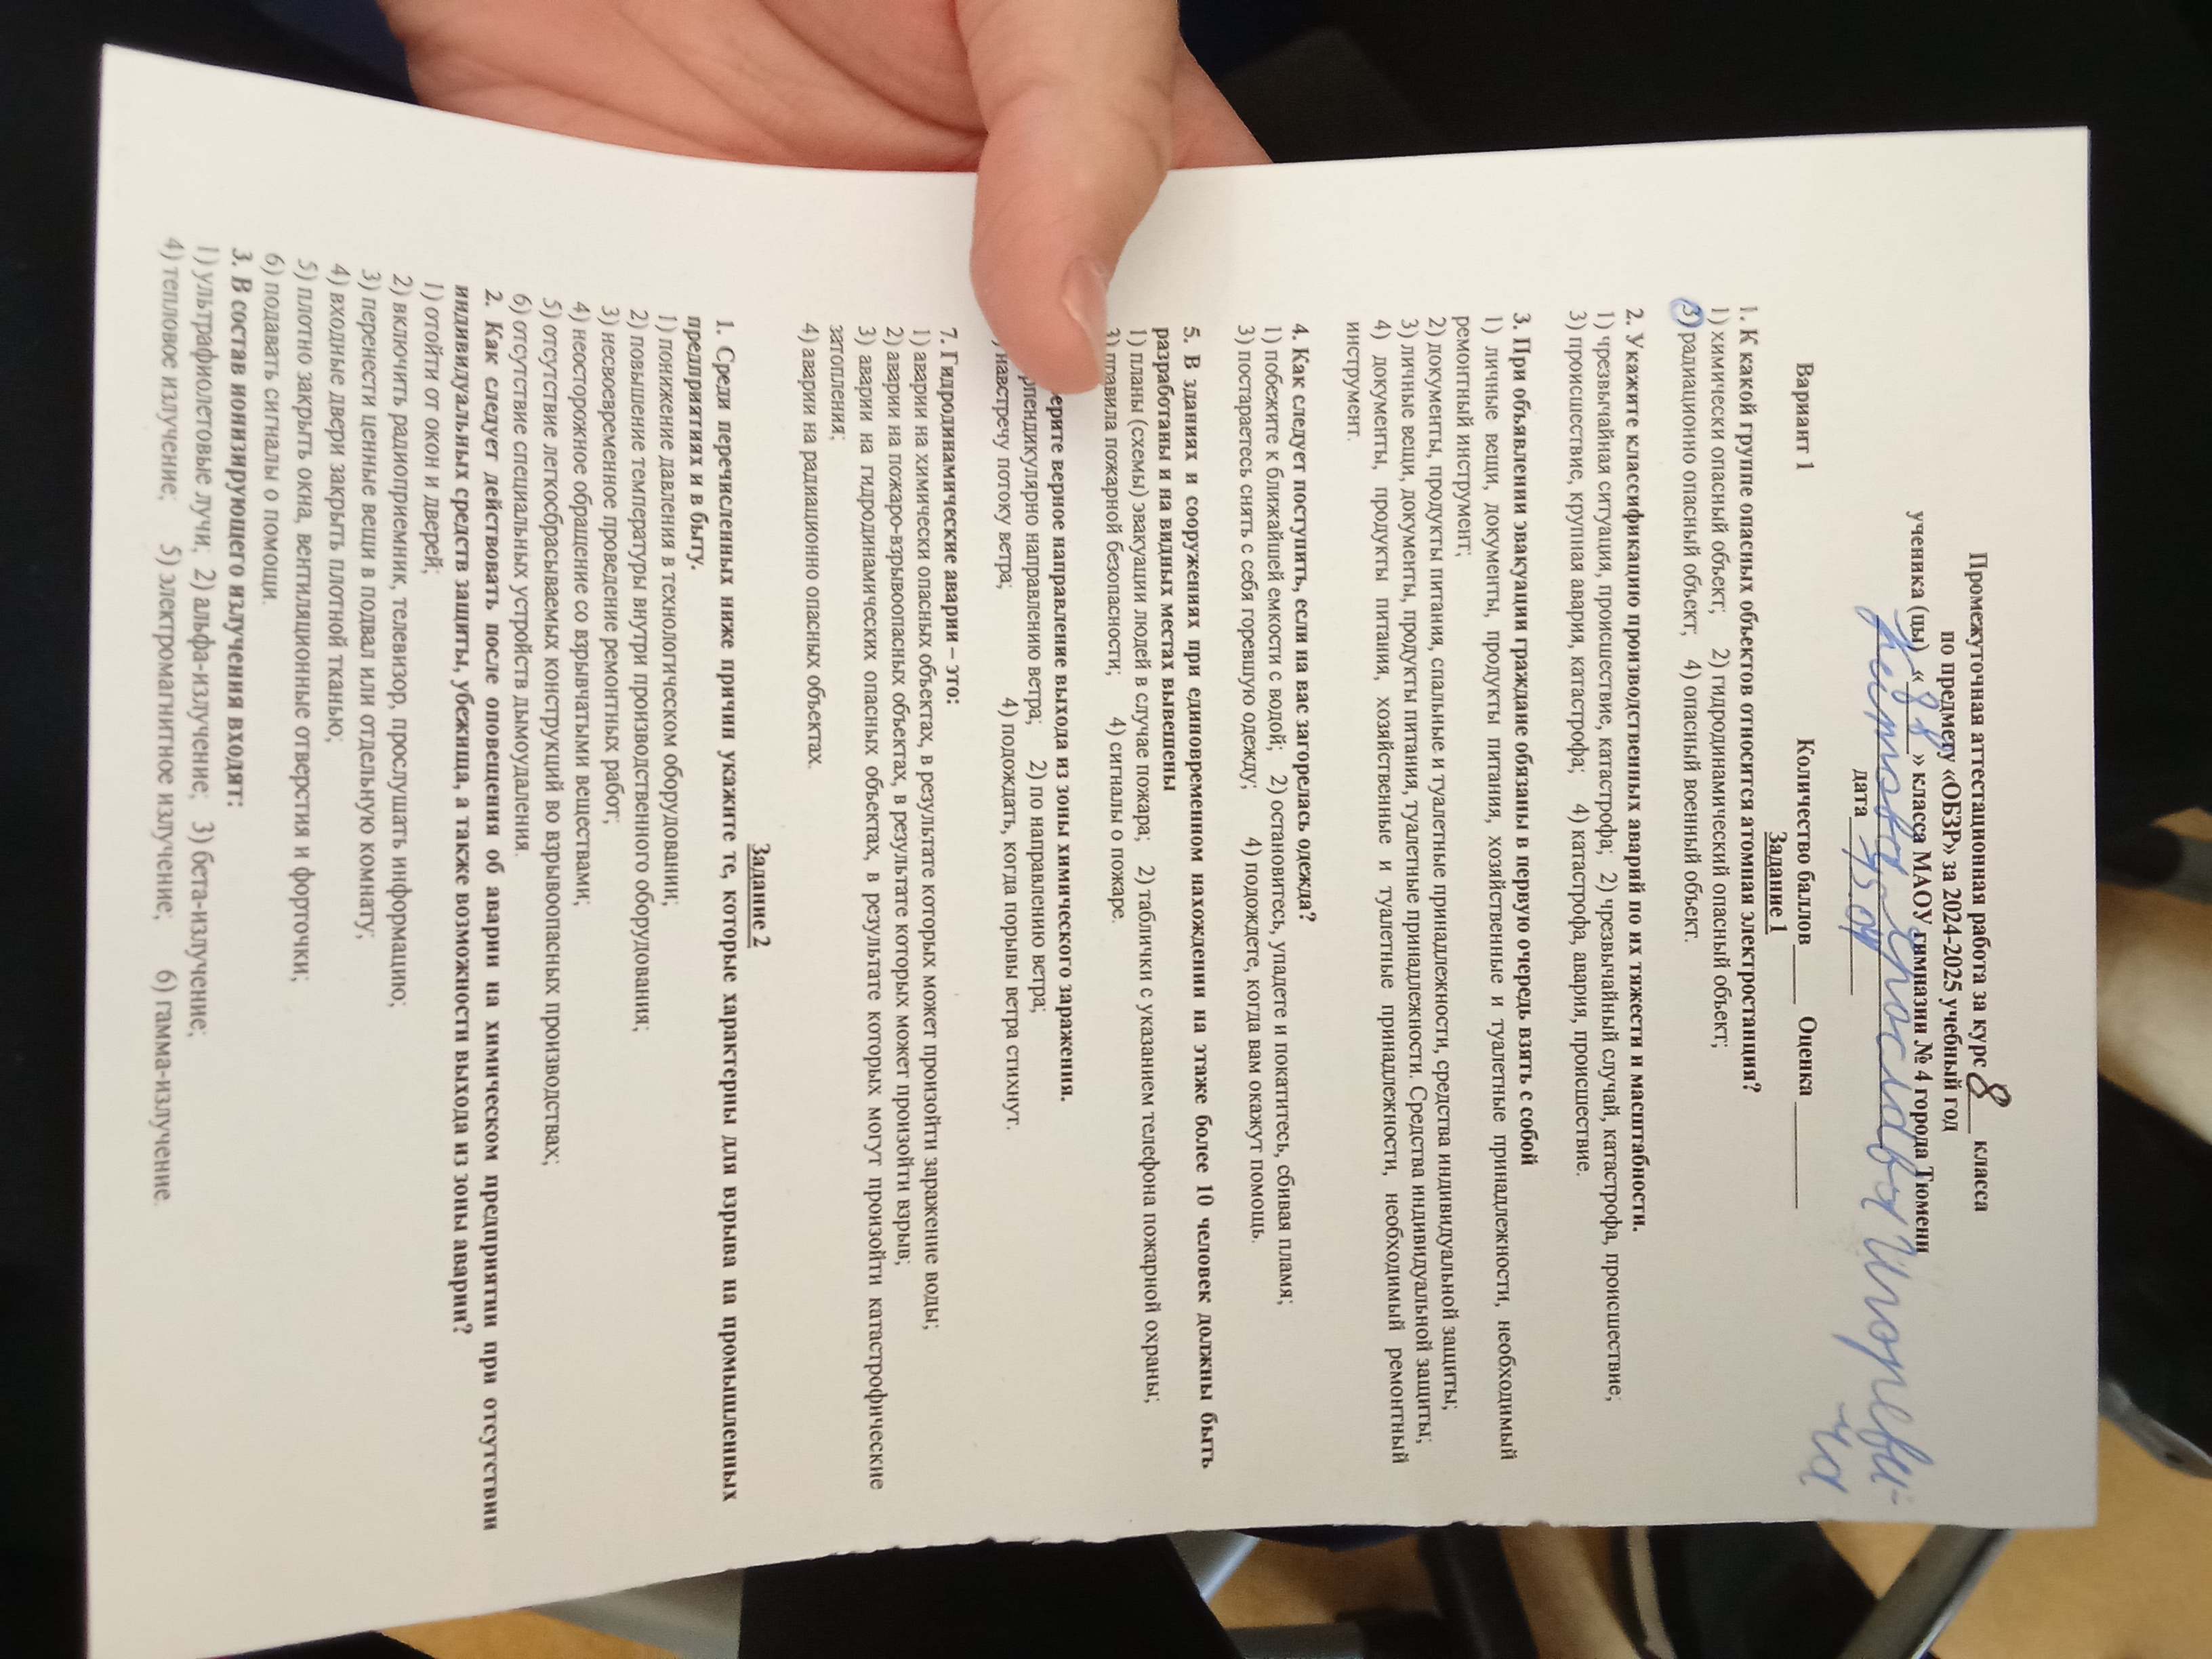 Промежуточная аттестационная работа за курс 8 класса
по предмету «ОБЗР» за 2024-2025 учебный год
ученика (цы) «88» класса МАОУ гимназии № 4 города Тюмени
Игореви-
ча
дата
Вариант 1 Количество баллов Оценка
Задание 1
1. К какой группе опасных объектов относится атомная электростанция?
1) химически опасный объект; 2) гидродинамический опасный объект;
3) радиационно опасный объект; 4) опасный военный объект.
2. Укажите классификацию производственных аварий по их тяжести и масштабности.
1) чрезвычайная ситуация, происшествие, катастрофа; 2) чрезвычайный случай, катастрофа, происшествие;
3) происшествие, крупная авария, катастрофа; 4) катастрофа, авария, происшествие.
3. При объявлении эвакуации граждане обязаны в первую очередь взять с собой
1) личные вещи, документы, продукты питания, хозяйственные и туалетные принадлежности, необходимый
ремонтный инструмент;
2) документы, продукты питания, спальные и туалетные принадлежности, средства индивидуальной защиты;
3) личные вещи, документы, продукты питания, туалетные принадлежности. Средства индивидуальной защиты;
4) документы, продукты питания, хозяйственные и туалетные принадлежности, необходимый ремонтный
инструмент.
4. Как следует поступить, если на вас загорелась одежда?
1) побежите к ближайшей емкости с водой; 2) остановитесь, упадете и покатитесь, сбивая пламя;
3) постараетесь снять с себя горевшую одежду; 4) подождете, когда вам окажут помощь.
5. В зданиях и сооружениях при единовременном нахождении на этаже более 10 человек должны быть
разработаны и на видных местах вывешены
1) планы (схемы) эвакуации людей в случае пожара; 2) таблички с указанием телефона пожарной охраны;
3) правила пожарной безопасности; 4) сигналы о пожаре.
ерите верное направление выхода из зоны химического заражения.
рпендикулярно направлению ветра; 2) по направлению ветра;
) навстречу потоку ветра; 4) подождать, когда порывы ветра стихнут.
7. Гидродинамические аварии – это:
1) аварии на химически опасных объектах, в результате которых может произойти заражение воды;
2) аварии на пожаро-взрывоопасных объектах, в результате которых может произойти взрыв;
3) аварии на гидродинамических опасных объектах, в результате которых могут произойти катастрофические
затопления;
4) аварии на радиационно опасных объектах.
Задание 2
1. Среди перечисленных ниже причин укажите те, которые характерны для взрыва на промышленных
предприятиях и в быту.
1) понижение давления в технологическом оборудовании;
2) повышение температуры внутри производственного оборудования;
3) несвоевременное проведение ремонтных работ;
4) неосторожное обращение со взрывчатыми веществами;
5) отсутствие легкосбрасываемых конструкций во взрывоопасных производствах;
6) отсутствие специальных устройств дымоудаления.
2. Как следует действовать после оповещения об аварии на химическом предприятии при отсутствии
индивидуальных средств защиты, убежища, а также возможности выхода из зоны аварии?
1) отойти от окон и дверей;
2) включить радиоприемник, телевизор, прослушать информацию;
3) перенести ценные вещи в подвал или отдельную комнату;
4) входные двери закрыть плотной тканью;
5) плотно закрыть окна, вентиляционные отверстия и форточки;
6) подавать сигналы о помощи.
3. В состав ионизирующего излучения входят:
1) ультрафиолетовые лучи; 2) альфа-излучение; 3) бета-излучение;
4) тепловое излучение; 5) электромагнитное излучение; 6) гамма-излучение.